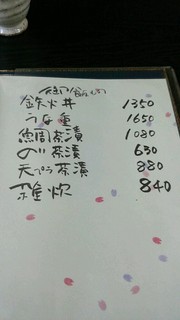 御飯物
鉄火丼 1350
うな重 1650
魚周茶漬 1080
のり茶漬 630
天ぷら茶漬 880
雑炊 840